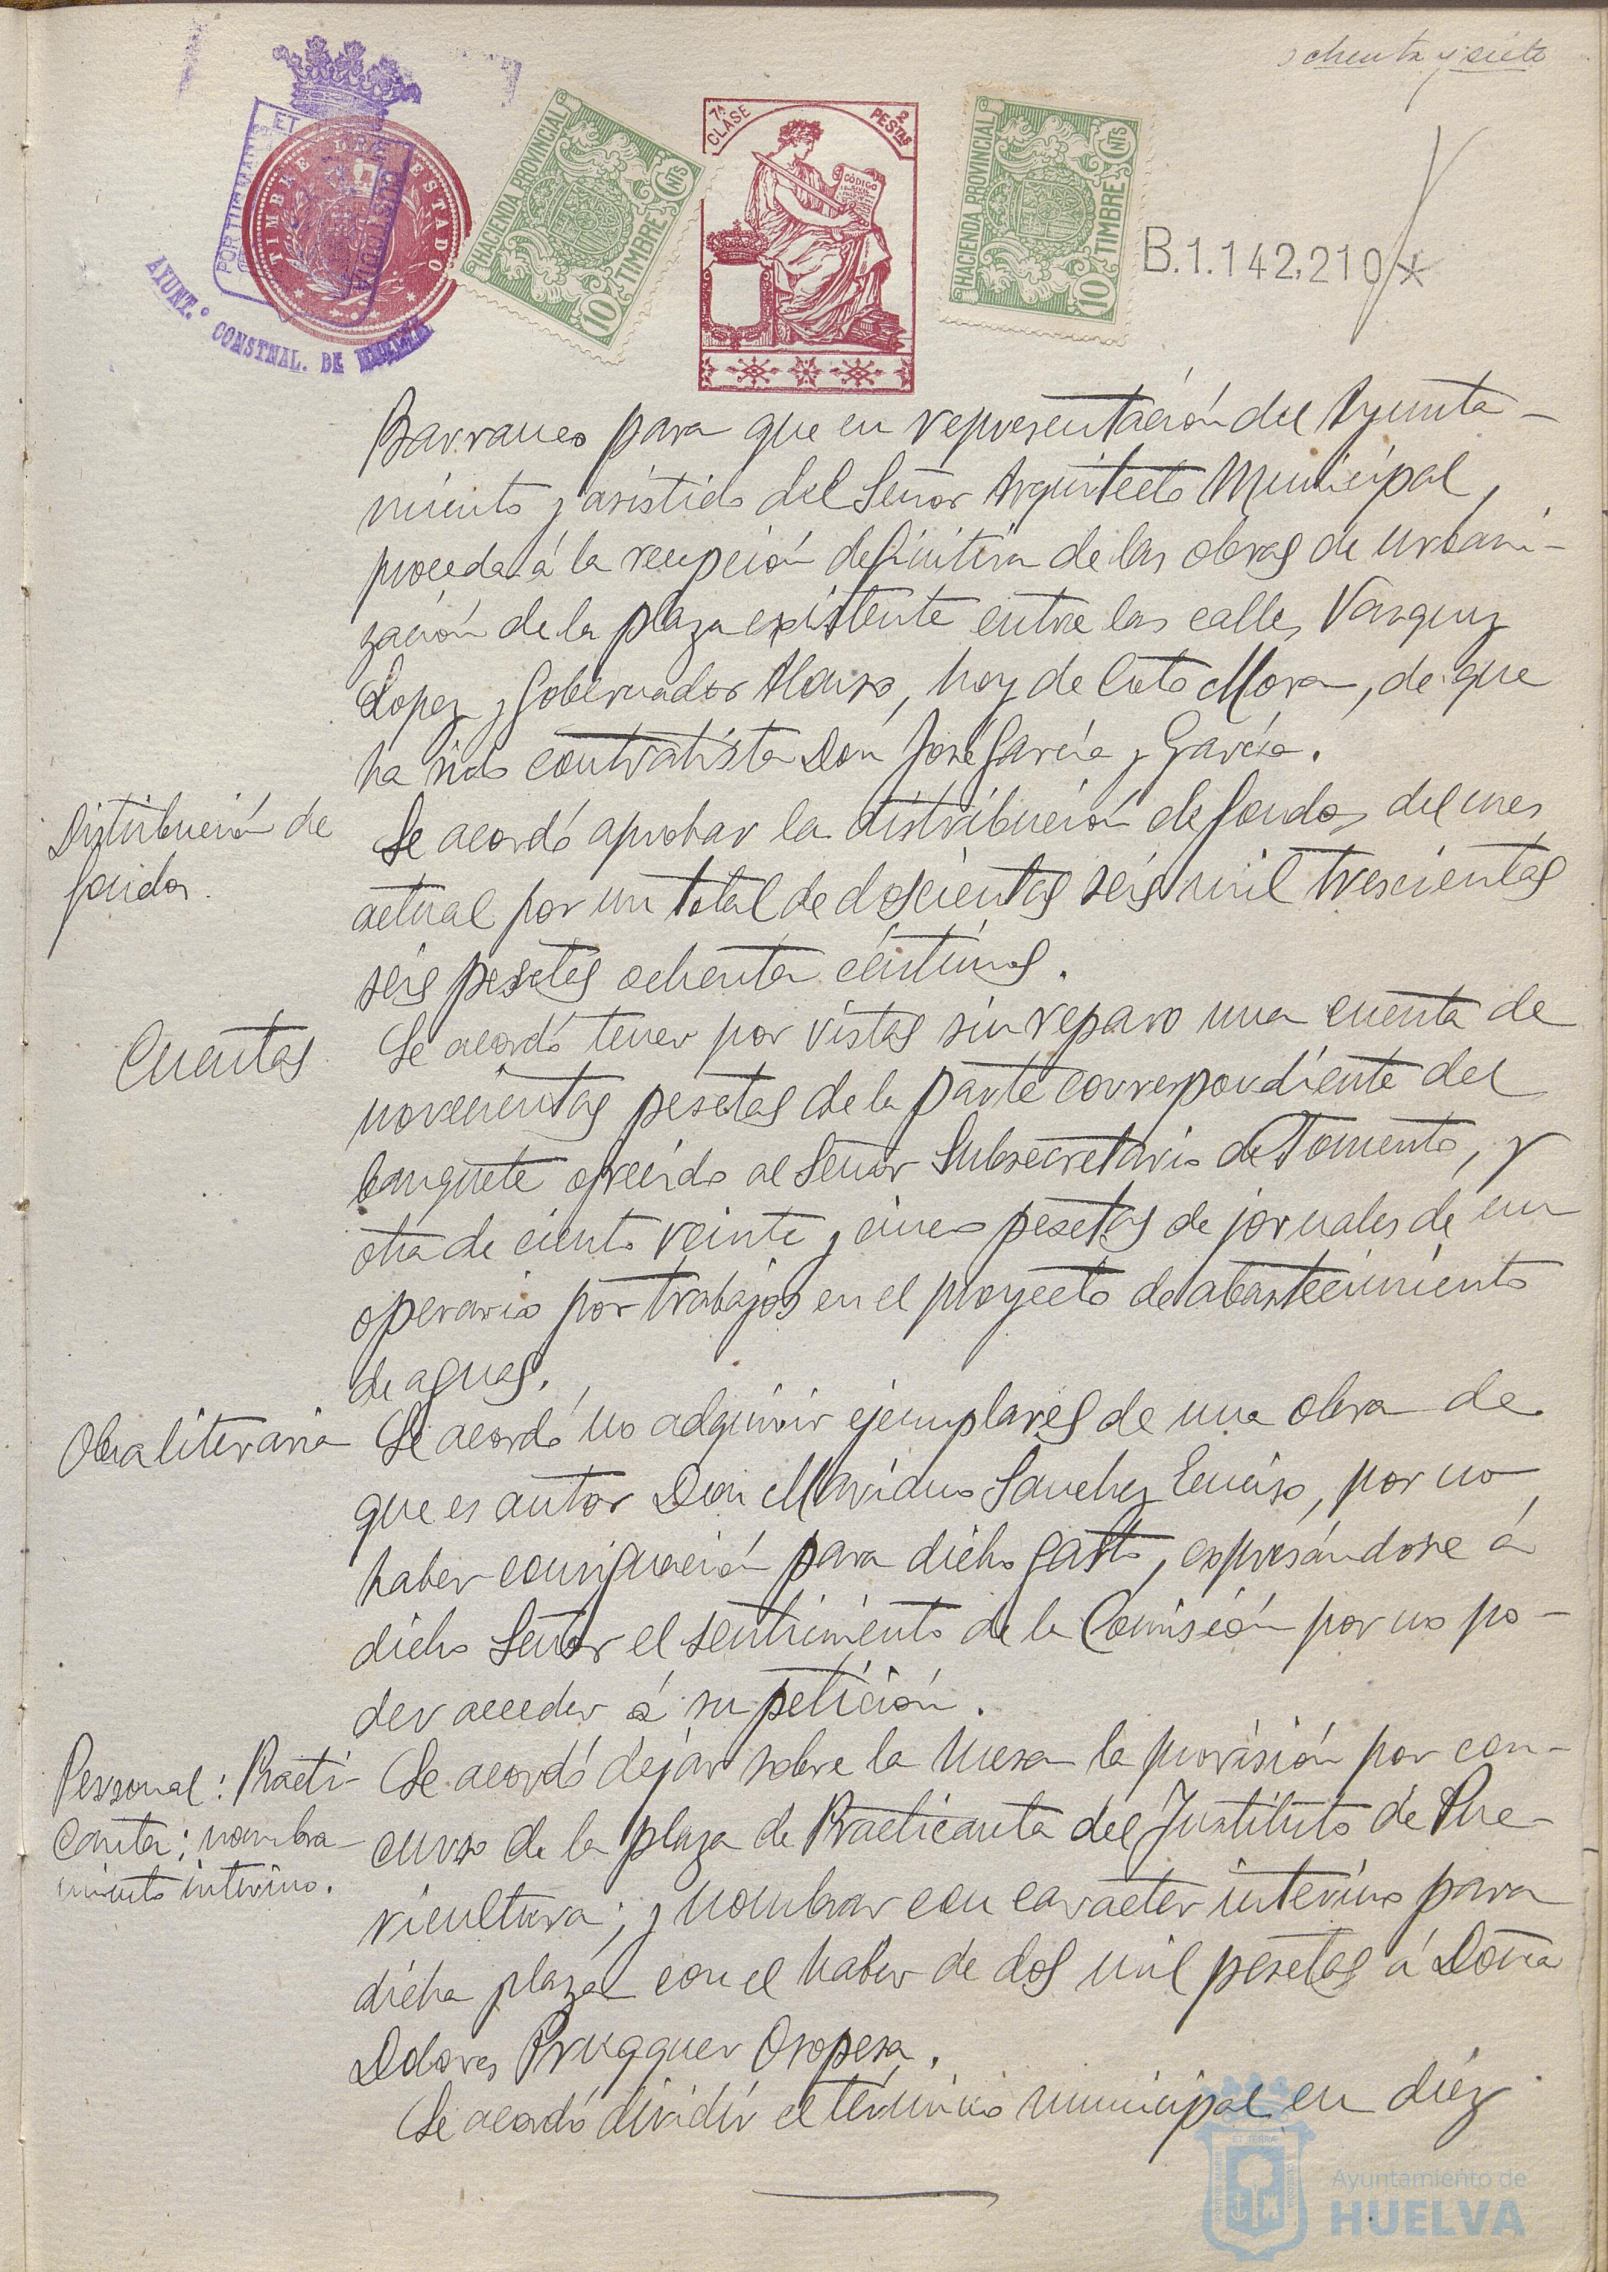 ochenta y siete
7ª CLASE
2 PESTAS
CÓDIGO
TIMBRE DEL ESTADO
PORTUS MARIS ET TERRÆ CUSTODIA
AYUNT.º CONSTNAL. DE HUELVA
HACIENDA PROVINCIAL
10 TIMBRE CNTS
HACIENDA PROVINCIAL
10 TIMBRE CNTS
B.1.142,210*
Barranco para que en representación del Ayunta-
miento y asistido del Señor Arquitecto Municipal,
proceda á la recepción definitiva de las obras de urbani-
zación de la plaza existente entre las calles Vazquez
Lopez y Gobernador Alonso, hoy de Coto Mora, de que
ha sido contratista Don José García y García.
Distribución de
fondos.
Se acordó aprobar la distribución de fondos del mes
actual por un total de doscientas seis mil trescientas
seis pesetas ochenta céntimos.
Cuentas
Se acordó tener por vistas sin reparo una cuenta de
novecientas pesetas de la parte correspondiente del
banquete ofrecido al Señor Subsecretario de Fomento, y
otra de ciento veinte y cinco pesetas de jornales de un
operario por trabajos en el proyecto de abastecimiento
de aguas.
Obra literaria
Se acordó no adquirir ejemplares de una obra de
que es autor Don Mariano Sanchez Enciso, por no
haber consignación para dicho gasto, expresándose á
dicho Señor el sentimiento de la Comisión por no po-
der acceder á su petición.
Personal: Practi-
canta: nombra-
miento interino.
Se acordó dejar sobre la Mesa la provisión por con-
curso de la plaza de Practicanta del Instituto de Pue-
ricultura; y nombrar con caracter interino para
dicha plaza con el haber de dos mil pesetas á Doña
Dolores Brugguer Oropesa.
Se acordó dividir el término municipal en diez
Ayuntamiento de
HUELVA